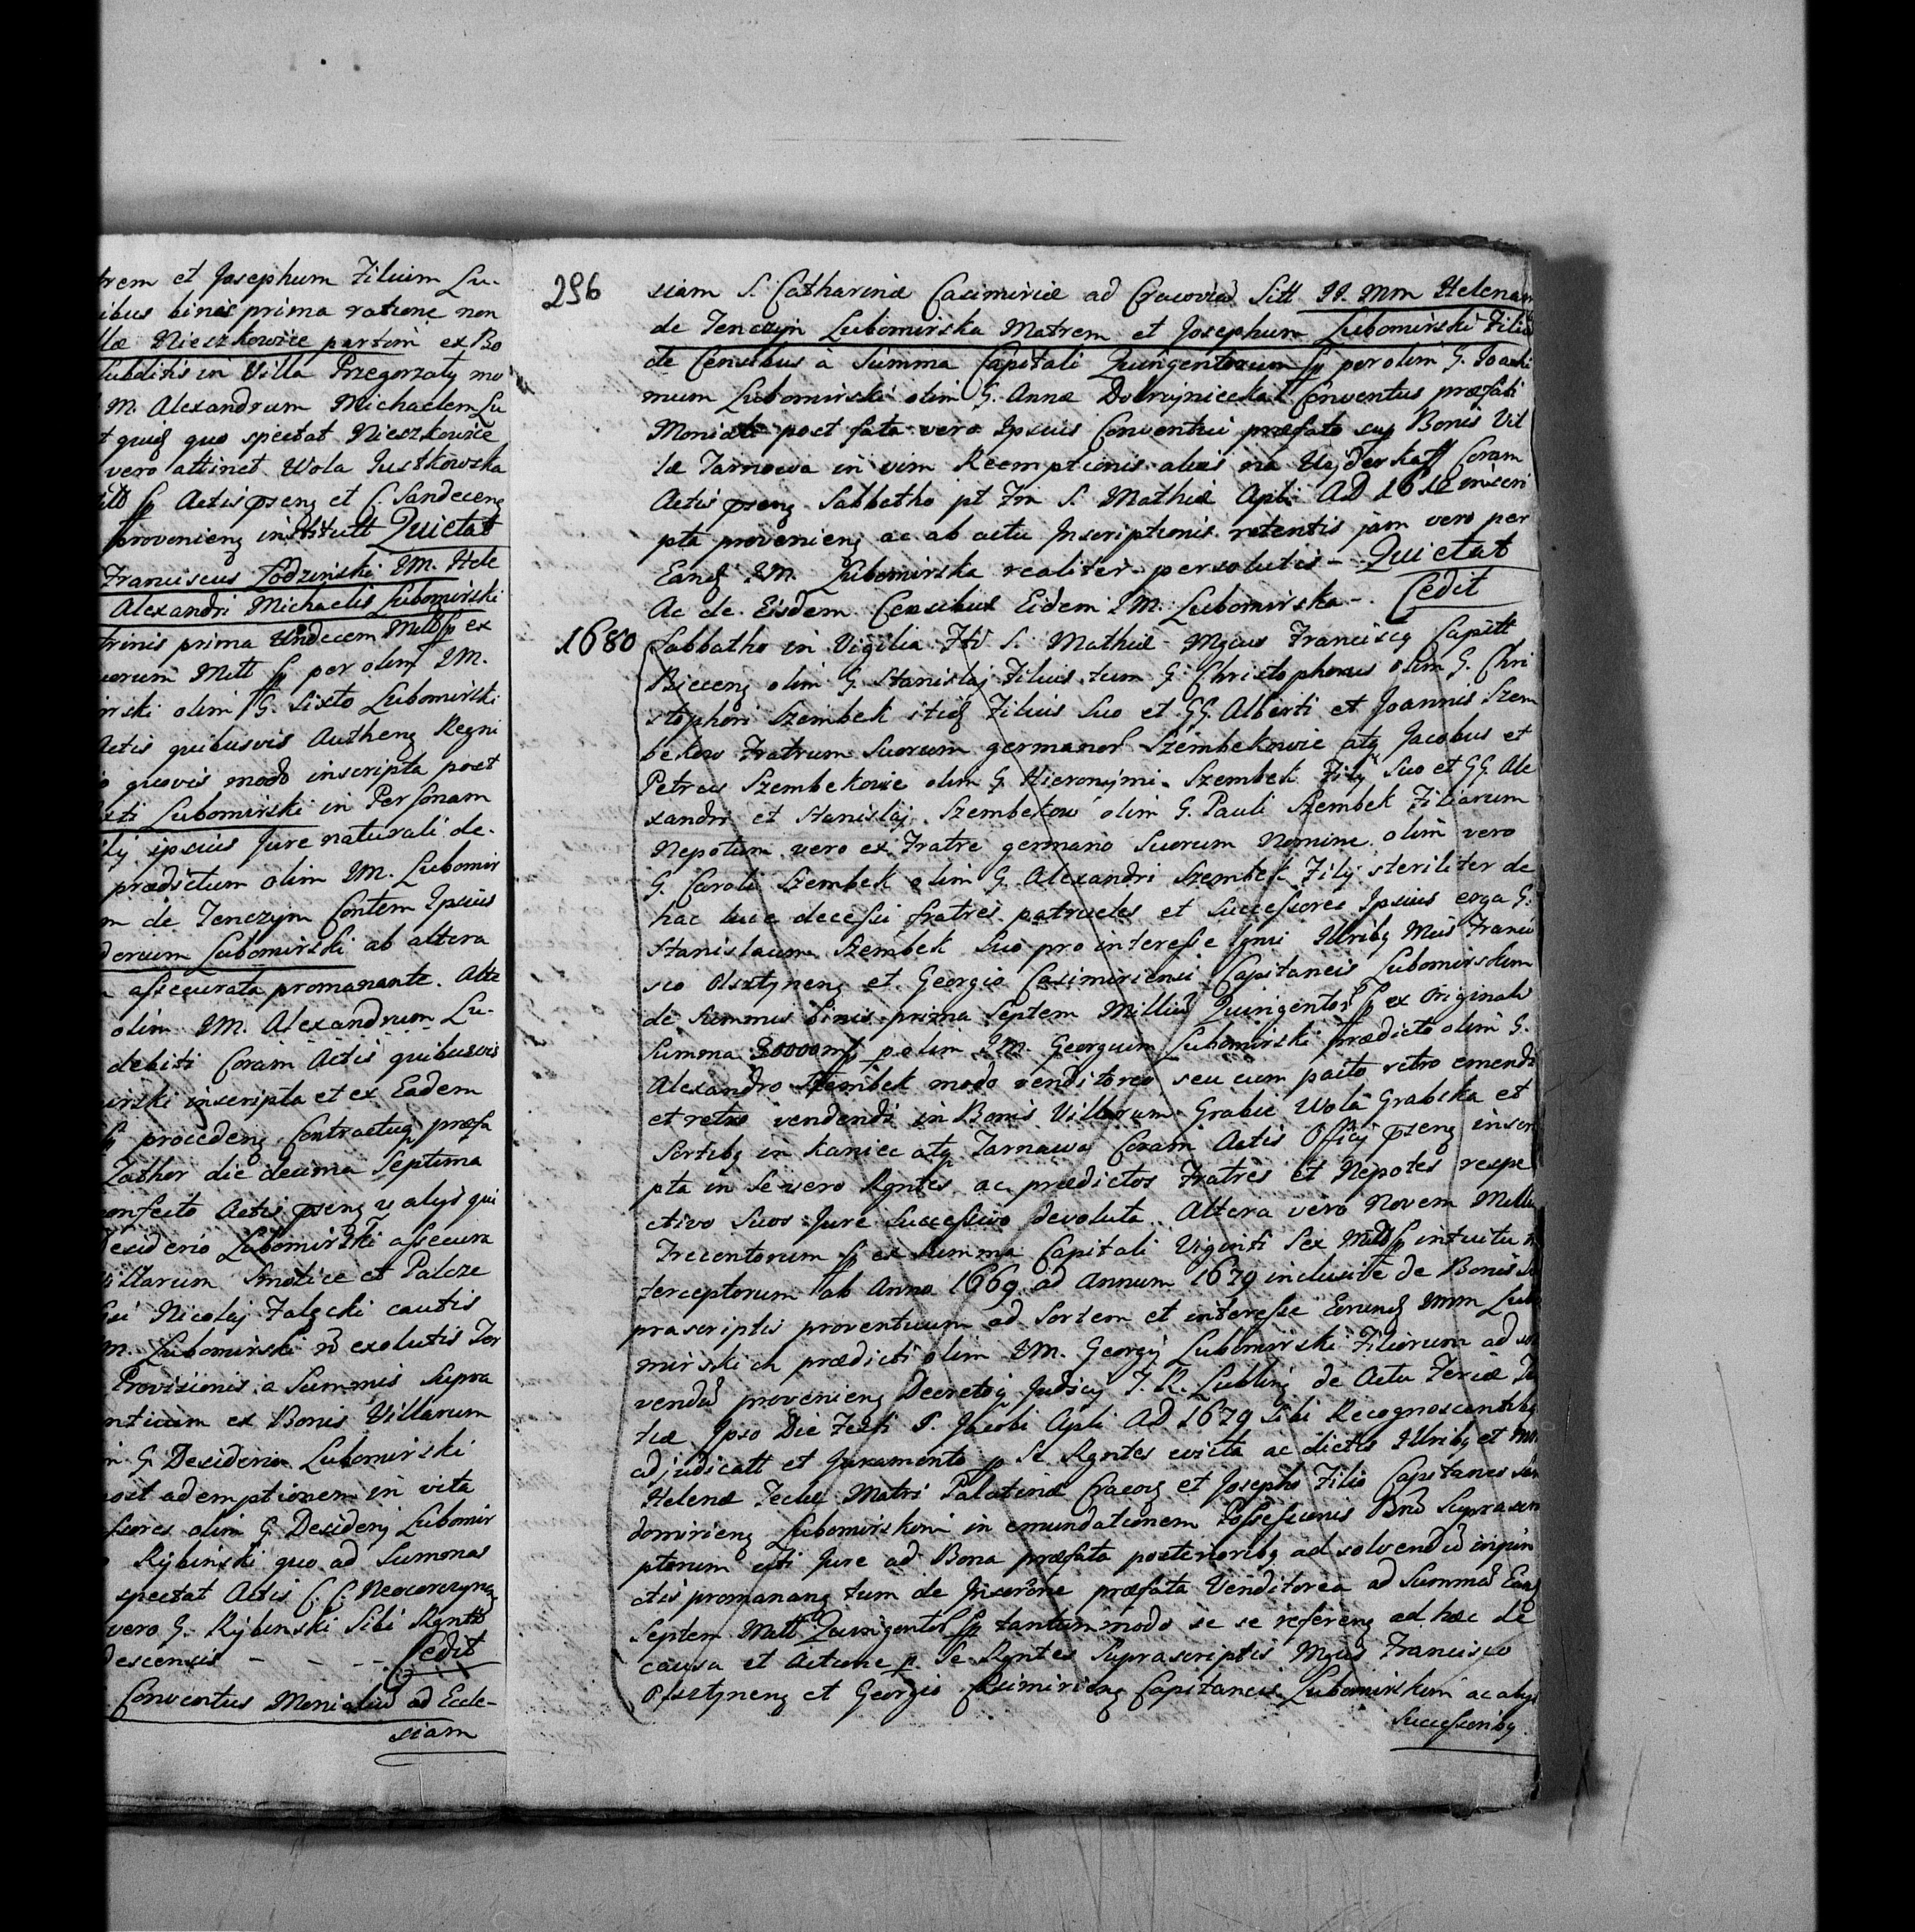 trem et Josephum Filium Lu-
ibus binis prima ratione non
llæ Nieszkowice partim ex Bo
Subditis in Villa Przegorzały mo
M. Alexandrum Michaelem Lu
t quid quo spectat Nieszkowice
vero attinet Wola Justkowska
Actis pseng et C. Sandeceng
provenieng institutt Quietat
Franciscus Łodzinski IM. Hele
Alexandri Michaelis Lubomirski
trinis prima Undecem Mill fl ex
uorum Mill fl per olim IM.
irski olim G. Sixto Lubomirski
Actis quibusvis Autheng Regni
o quovis modo inscripta post
sti Lubomirski in Personam
lij ipsius Jure naturali de-
prædictum olim IM. Lubomir
m de Tenczyn Contem Ipsius
derum Lubomirski ab altera
assecurata promanante. Alte
olim IM. Alexandrum Lu-
debiti Coram Actis quibusvis
irski inscripta et ex Eadem
procedeng Contractuq præfa
Zathor die decima Septima
onfecto Actis pseng v alijs qui
Desiderio Lubomirski assecura
illarum Smolice et Palcze
Gsi Nicolaj Falęcki cautis
m. Lubomirski n exolutis Ter
Provisionis a Summis Supra
ntuum ex Bonis Villarum
n G. Desiderio Lubomirski
post ademptionem in vita
ssores olim G Desiderij Lubomir
Rybinski quo ad Summas
spectat Actis C. C. Neocorczyng
vero G. Rybinski Sibi Rgntto
descensis - - - - Cedit
Conventus Monialiu ad Eccle-
siam
296
siam S. Catharinæ Casimiriæ ad Cracovia Sitt II. Mm Helenam
de Tenczyn Lubomirska Matrem et Josephum Lubomirski Filiu
de Censibus a Summa Capitali Quingentorum fl per olim G. Joachi
mum Lubomirski olim G. Annæ Dobrynieckal Conventus præfati
Moniali post fata vero Ipsius Conventui præfato sup Bonis Vil
læ Tarnowa in vim Reemptionis alias na Wyderkaff Coram
Actis pseng Sabbatho pt Fm S. Mathiæ Apli AD 1612 inscri
pta provenieng ac ab actu Inscriptionis retentis jam vero per
Eand IM. Lubomirska realiter persolutis - Quietat
Ac de Eisdem Censibus Eidem IM. Lubomirska -. Cedit
1680 Sabbatho in Vigilia Fti S. Mathiæ - Mgcus Franciscq Capitt
Bieceng olim G. Stanislaj Filius tum G. Christophorus olim G. Chri
stophori Szembek itid Filius Suo et GG. Alberti et Joannis Szem
bekow Fratrum Suorum germanor Szembekowie atq Jacobus et
Petrus Szembekowie olim G. Hieronymi Szembek Filij Suo et GG. Ale
xandri et Stanislaj Szembekow olim G. Pauli Szembek Filiarum
Nepotum vero ex Fratre germano Suorum Nomine olim vero
G. Caroli Szembek olim G. Alexandri Szembek Filij steriliter de
hac luce decessi fratres patrueles et Successores Ipsius erga G.
Stanislaum Szembek Suo pro interesse Ignui Illribq Mcis Franci
sco Olsztyneng et Georgio Casimiriensi Capitaneis Lubomirskim
de Summis binis prima Septem Milliu Quingentor fl ex Originali
Summa 30000 p olim IM. Georgium Lubomirski prædicto olim G.
Alexandro Szembek modo venditoreo seu cum pacto retro emendi
et retro vendendi in Bonis Villarum Grabie Wola Grabska et
Sortibq in Kaniec atq Tarnawa Coram Actis Officij pseng inscri
pta in Se vero Rgntes ac prædictos Fratres et Nepotes respe
ctivo Suos Jure Successivo devoluta. Altera vero Novem Milliu
Trecentorum fl ex Summa Capitali Viginti Sex Mill fl intuitu in
terceptorum ab Anno 1669 ad Annum 1679 inclusive de Bonis su
prascriptis proventuum ad Sortem et interesse Eorund Mm Lubo
mirskich prædicti olim IM. Georgij Lubomirski Filiorum ad sol
vendu provenieng Decretoq Judicij T. R. Lubling de Actu Feriæ
tiæ Ipso Die Festi S. Jacobi Apli AD 1679 Sibi Recognoscentibq
adjudicatt et Juramento p Se Rgntes evicta ac dictis Illribq et
Helenæ Matri Palatinæ Cracovg et Josepho Filio Capitaneo San
domirieng Lubomirskim in emundationem Possessionis Bnor Suprascri
ptorum uti Jure ad Bona præfata posterioribq ad solvendu injun
ctis promanang tum de Inscrõne præfata Venditorea ad Summa Eand
Septem Mill Quingentor fl tantummodo se se refereng ad hæc de
causa et Actione p Se Rgntes Suprascriptis Mgcis Francisco
Olsztyneng et Georgio Casimirieng Capitaneis Lubomirskim ac alijs
Successoribq